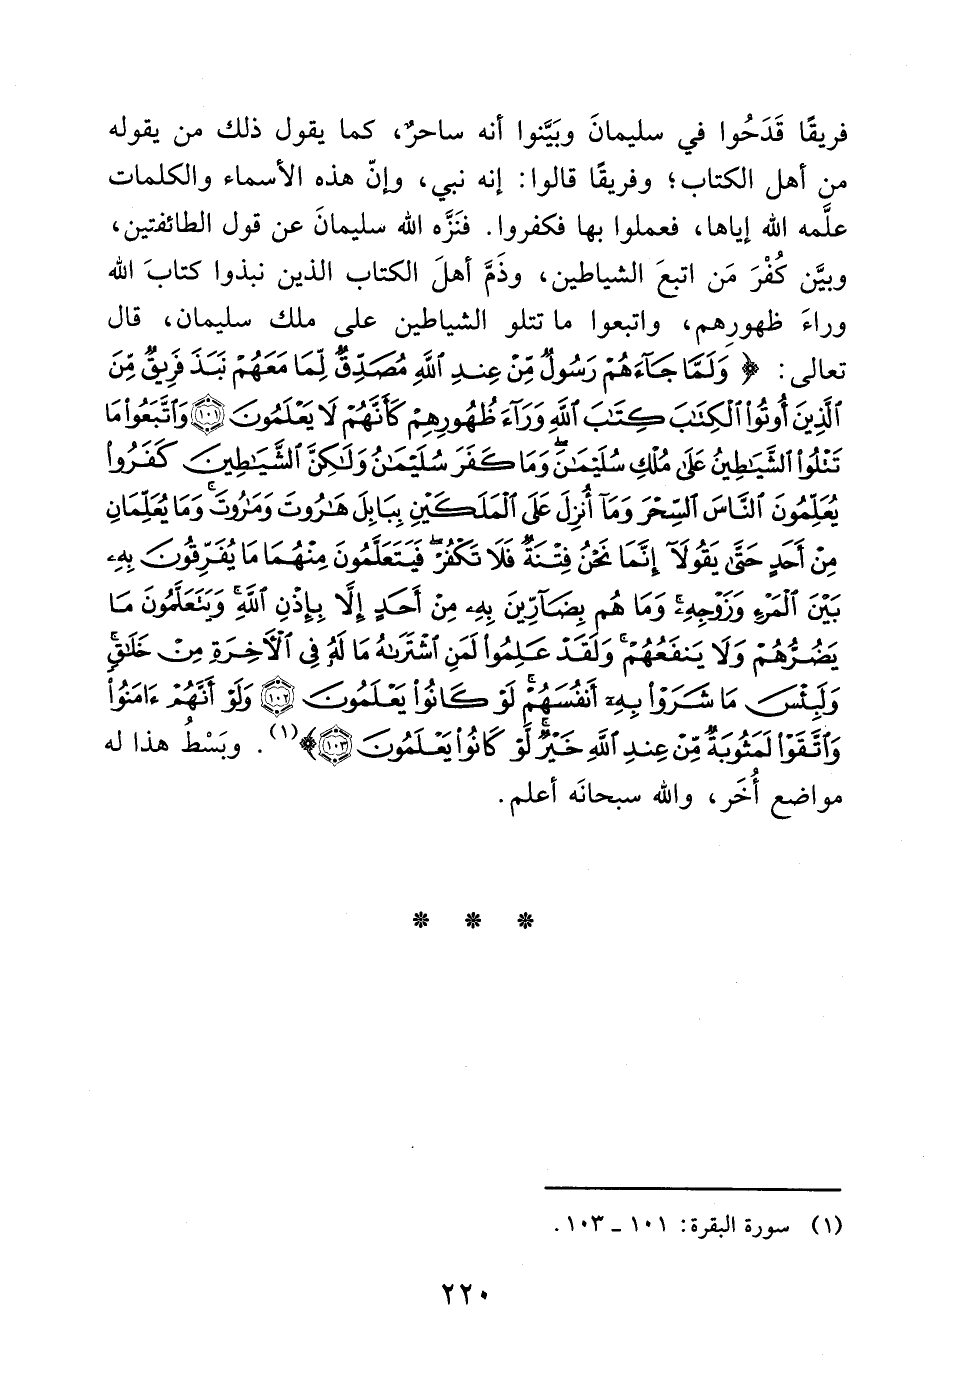 فريقًا قَدَحُوا في سليمانَ وبَيَّنوا أنه ساحرٌ، كما يقول ذلك من يقوله
من أهل الكتاب؛ وفريقًا قالوا: إنه نبي، وإنّ هذه الأسماء والكلمات
علَّمه الله إياها، فعملوا بها فكفروا. فنَزَّه الله سليمانَ عن قول الطائفتين،
وبيَّن كُفْرَ مَن اتبعَ الشياطين، وذَمَّ أهلَ الكتاب الذين نبذوا كتابَ الله
وراءَ ظهورِهم، واتبعوا ما تتلو الشياطين على ملك سليمان، قال
تعالى: ﴿ وَلَمَّا جَآءَهُمْ رَسُولٌ مِّنْ عِندِ ٱللَّهِ مُصَدِّقٌ لِّمَا مَعَهُمْ نَبَذَ فَرِيقٌ مِّنَ
ٱلَّذِينَ أُوتُوا۟ ٱلْكِتَٰبَ كِتَٰبَ ٱللَّهِ وَرَآءَ ظُهُورِهِمْ كَأَنَّهُمْ لَا يَعْلَمُونَ ۝١٠١ وَٱتَّبَعُوا۟ مَا
تَتْلُوا۟ ٱلشَّيَٰطِينُ عَلَىٰ مُلْكِ سُلَيْمَٰنَ ۖ وَمَا كَفَرَ سُلَيْمَٰنُ وَلَٰكِنَّ ٱلشَّيَٰطِينَ كَفَرُوا۟
يُعَلِّمُونَ ٱلنَّاسَ ٱلسِّحْرَ وَمَآ أُنزِلَ عَلَى ٱلْمَلَكَيْنِ بِبَابِلَ هَٰرُوتَ وَمَٰرُوتَ ۚ وَمَا يُعَلِّمَانِ
مِنْ أَحَدٍ حَتَّىٰ يَقُولَآ إِنَّمَا نَحْنُ فِتْنَةٌ فَلَا تَكْفُرْ ۖ فَيَتَعَلَّمُونَ مِنْهُمَا مَا يُفَرِّقُونَ بِهِۦ
بَيْنَ ٱلْمَرْءِ وَزَوْجِهِۦ ۚ وَمَا هُم بِضَآرِّينَ بِهِۦ مِنْ أَحَدٍ إِلَّا بِإِذْنِ ٱللَّهِ ۚ وَيَتَعَلَّمُونَ مَا
يَضُرُّهُمْ وَلَا يَنفَعُهُمْ ۚ وَلَقَدْ عَلِمُوا۟ لَمَنِ ٱشْتَرَىٰهُ مَا لَهُۥ فِى ٱلْءَاخِرَةِ مِنْ خَلَٰقٍ ۚ
وَلَبِئْسَ مَا شَرَوْا۟ بِهِۦٓ أَنفُسَهُمْ ۚ لَوْ كَانُوا۟ يَعْلَمُونَ ۝١٠٢ وَلَوْ أَنَّهُمْ ءَامَنُوا۟
وَٱتَّقَوْا۟ لَمَثُوبَةٌ مِّنْ عِندِ ٱللَّهِ خَيْرٌ ۖ لَّوْ كَانُوا۟ يَعْلَمُونَ ۝١٠٣﴾(١). وبَسْطُ هذا له
مواضع أُخَر، والله سبحانَه أعلم.
* * *
(١) سورة البقرة: ١٠١ - ١٠٣.
٢٢٠